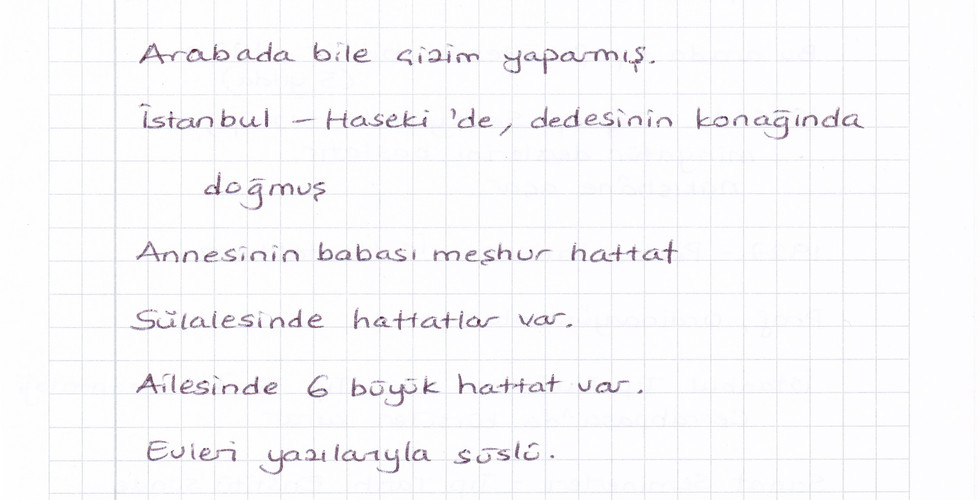 Arabada bile çizim yaparmış.
İstanbul - Haseki 'de, dedesinin konağında
doğmuş
Annesinin babası meşhur hattat
Sülalesinde hattatlar var.
Ailesinde 6 büyük hattat var.
Evleri yazılarıyla süslü.